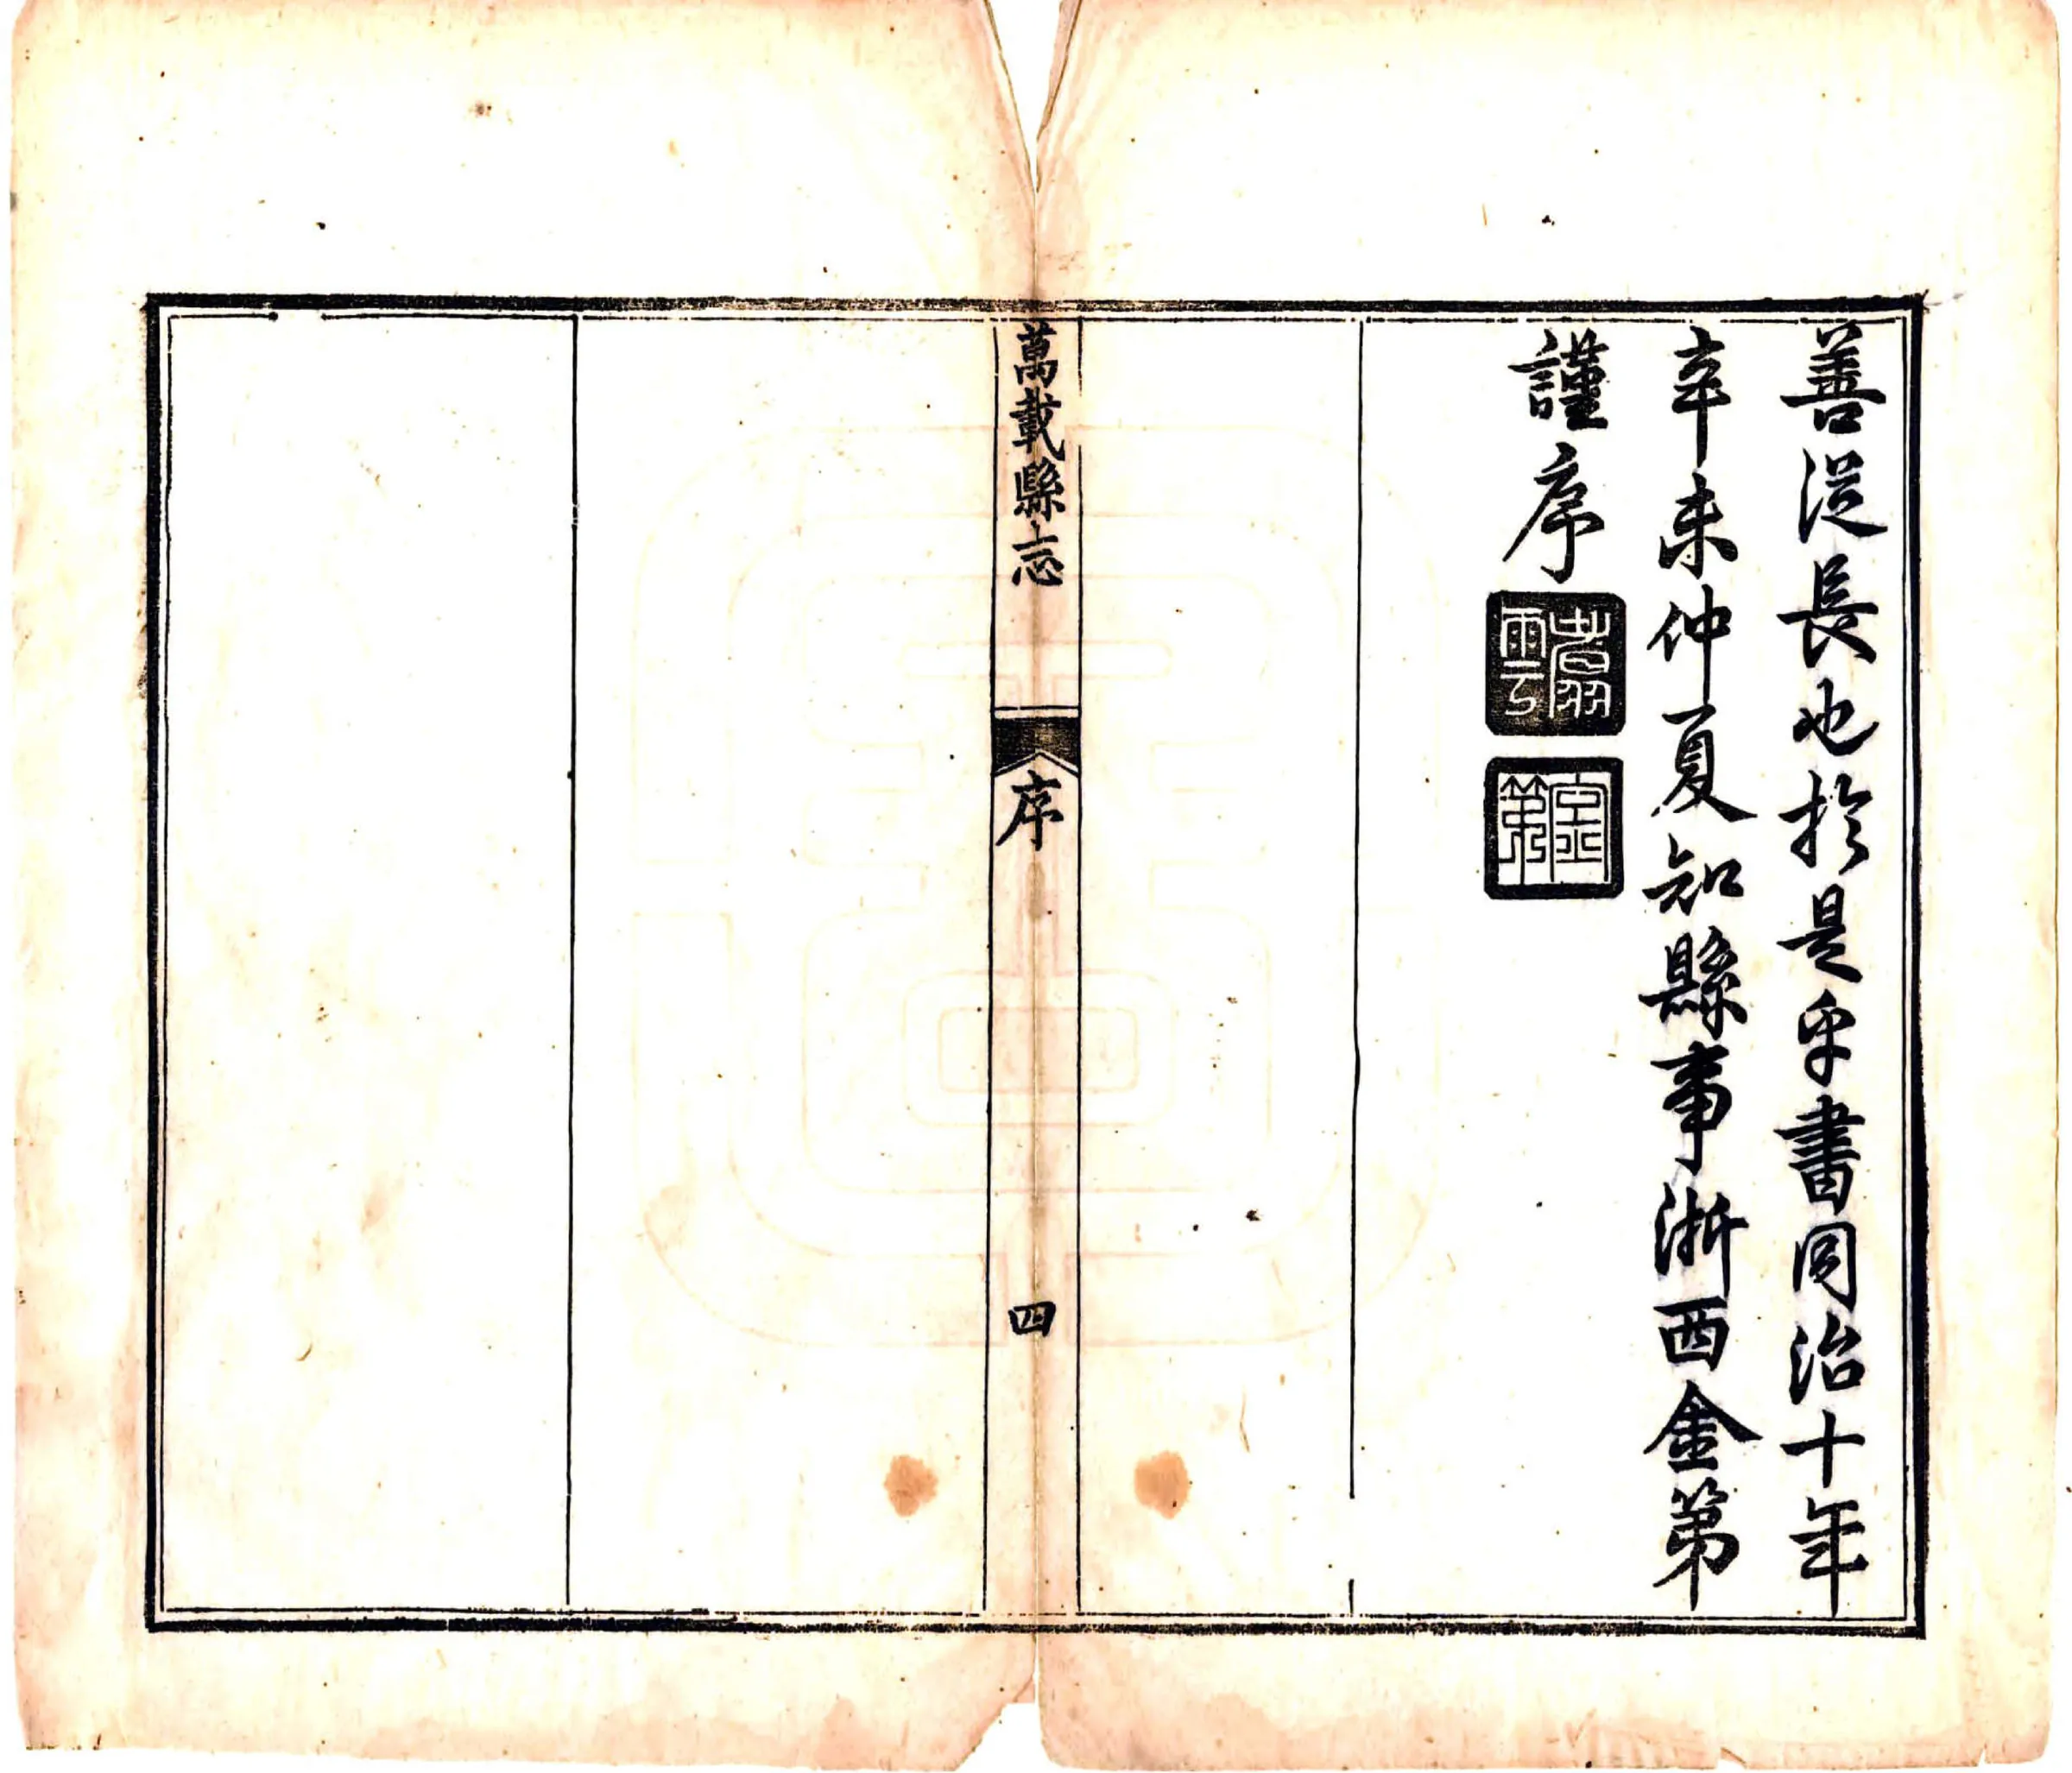 善從長也於是乎書同治十年
辛未仲夏知縣事浙西金第
謹序
金第
萬載縣志
序
四